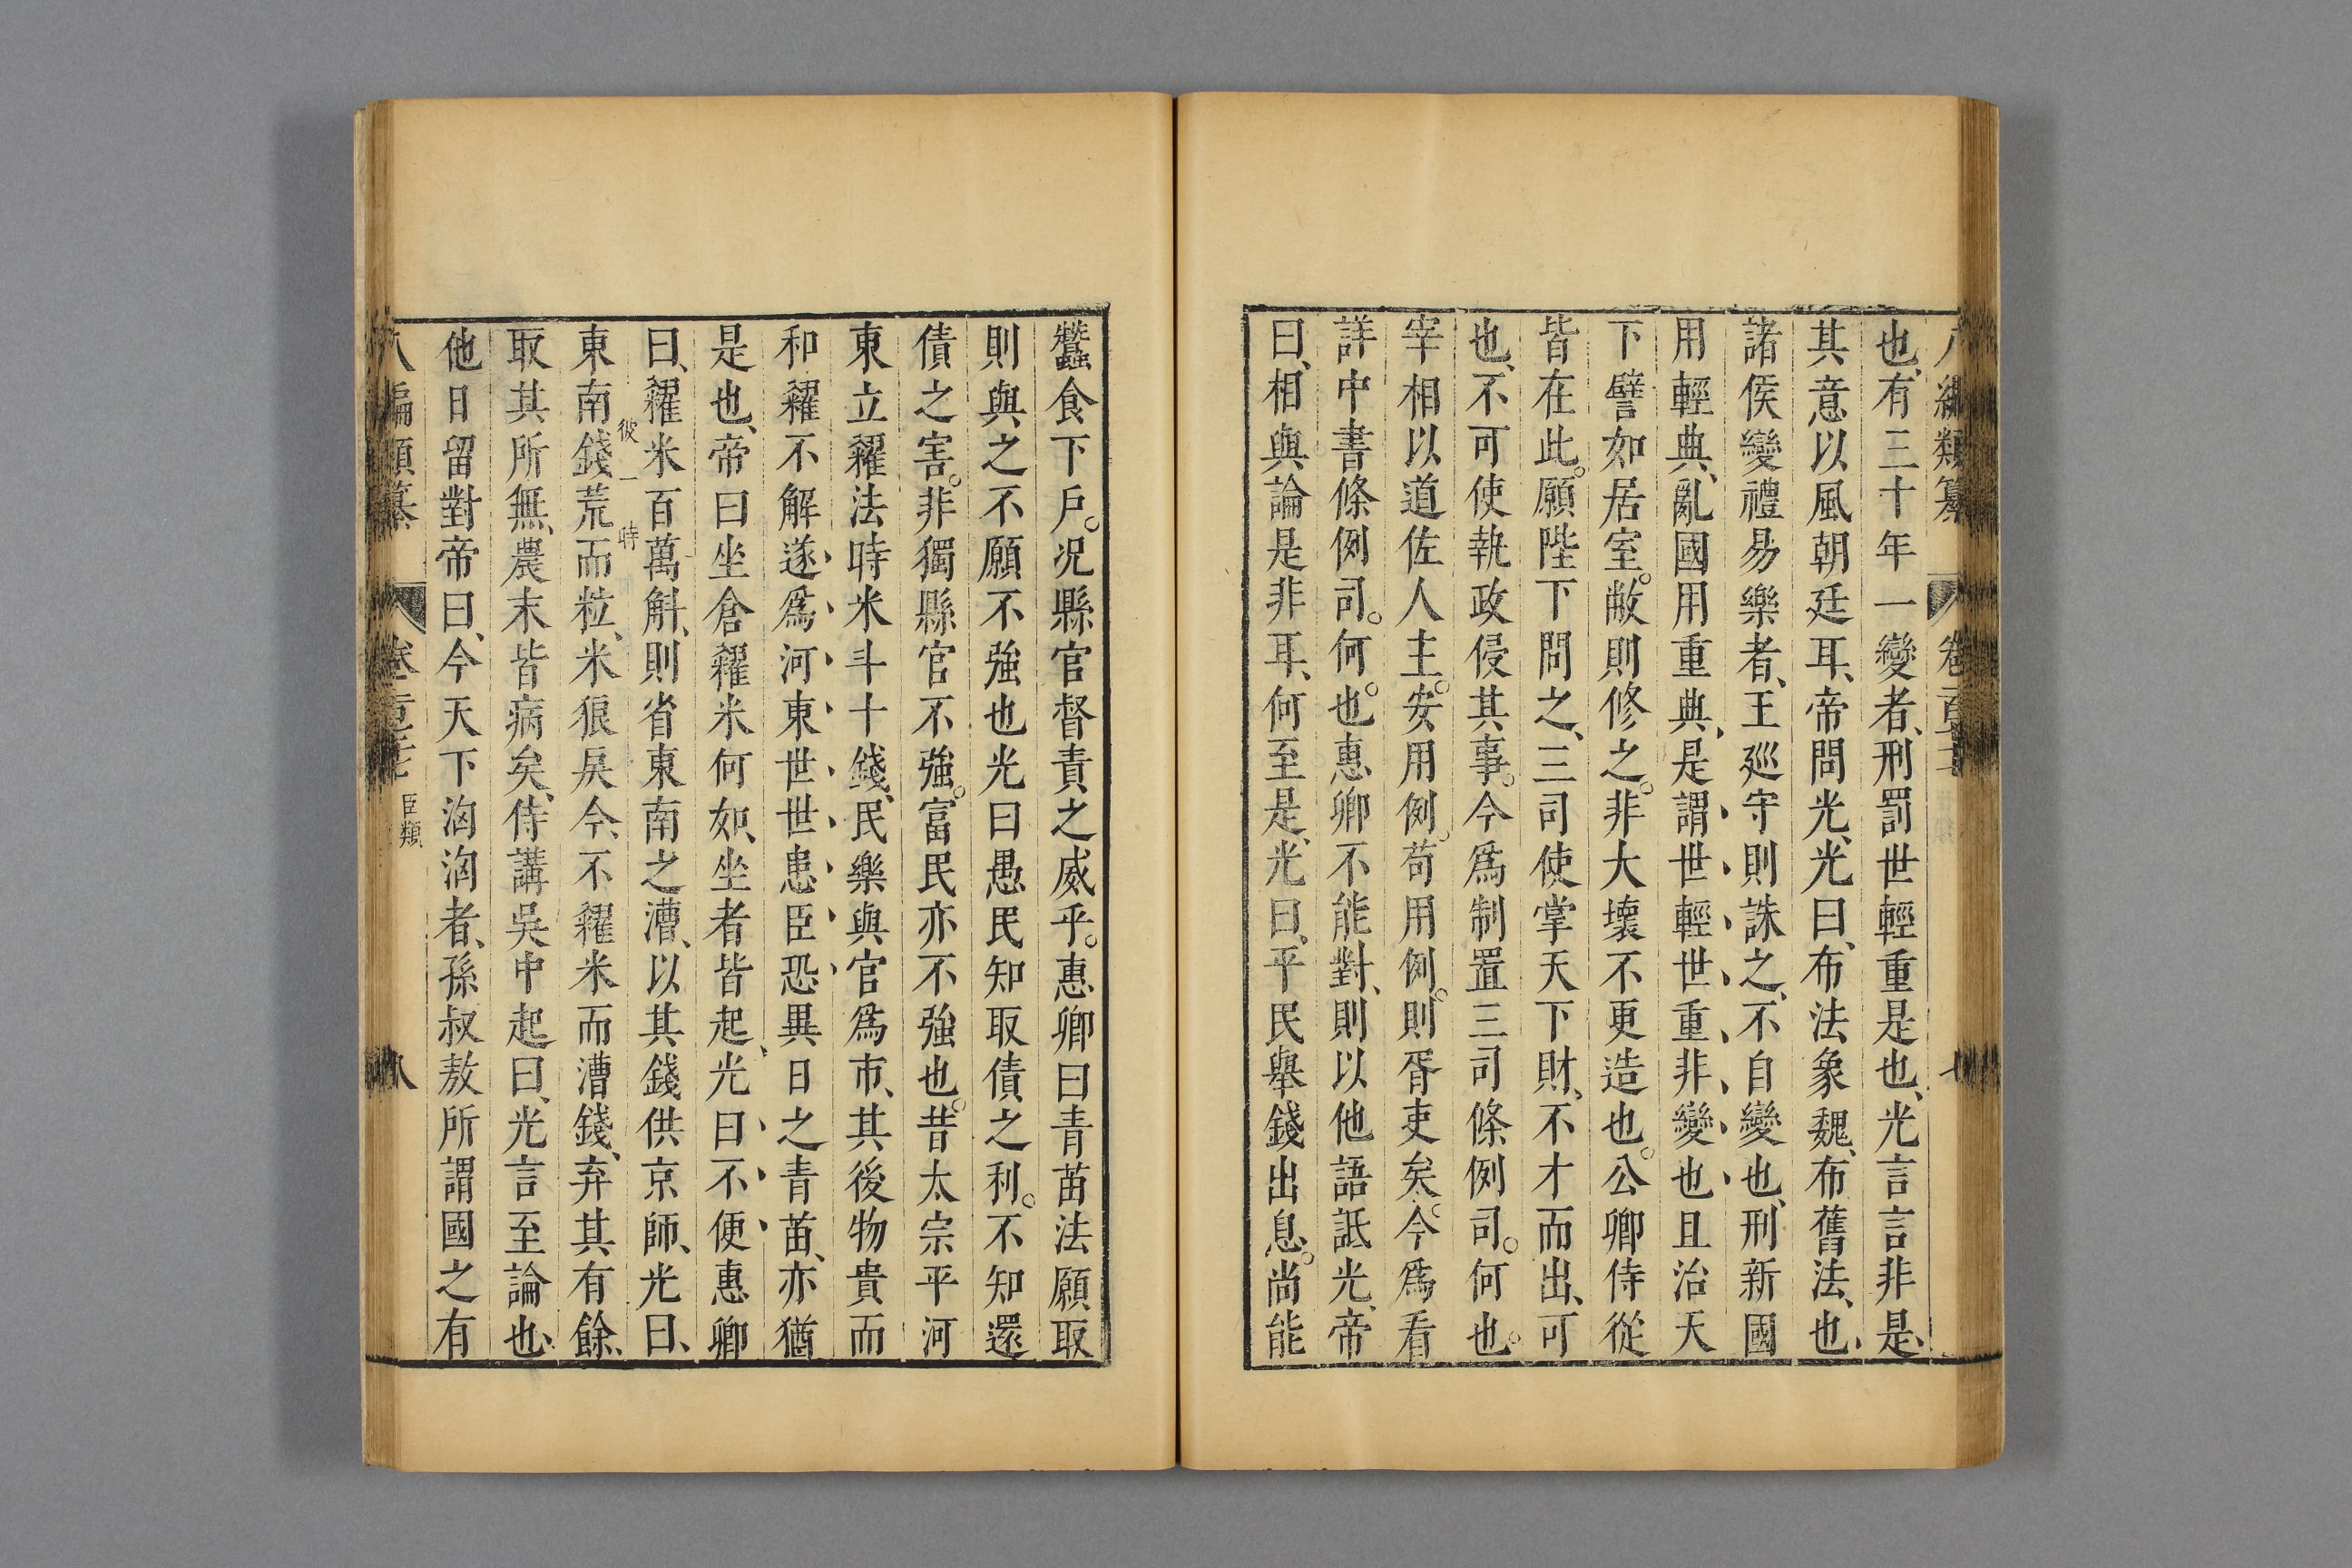 八編類纂 卷百 七
也、有三十年一變者、刑罰世輕重是也、光言言非是、
其意以風朝廷耳、帝問光、光曰、布法象魏、布舊法、也、
諸侯變禮易樂者、王廵守則誅之、不自變也、刑新國
用輕典、亂國用重典、是謂世輕世重、非變也且治天
下譬如居室。敝則修之。非大壞不更造也。公卿侍從
皆在此。願陛下問之、三司使掌天下財、不才而出、可
也、不可使執政侵其事。今爲制置三司條例司。何也。
宰相以道佐人主。安用例。苟用例。則胥吏矣。今爲看
詳中書條例司。何也。惠卿不能對、則以他語詆光、帝
曰、相與論是非耳、何至是、光曰、平民舉錢出息。尚能
蠶食下戶。况縣官督責之威乎。惠卿曰青苗法願取
則與之不願不強也光曰愚民知取債之利。不知還
債之害。非獨縣官不強。富民亦不強也。昔太宗平河
東立糴法時米斗十錢、民樂與官爲市、其後物貴而
和糴不解遂爲河東世世患臣恐異日之青苗、亦猶
是也、帝曰坐倉糴米何如、坐者皆起、光曰不便惠卿
曰、糴米百萬斛、則省東南之漕、以其錢供京師、光曰、
彼一時
東南錢荒而粒米狼戾今、不糴米而漕錢、弃其有餘、
取其所無、農末皆病矣、侍講吳申起曰、光言至論也、
他日留對帝曰、今天下洶洶者、孫叔敖所謂國之有
八編類纂 卷 臣類 八